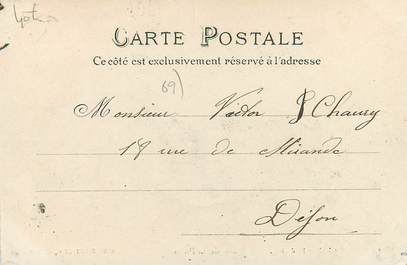 CARTE POSTALE
Ce côté est exclusivement réservé à l'adresse
69)
Monsieur Victor Chaury
18 rue de Mirande
Dijon